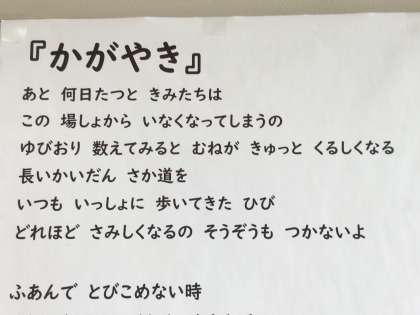 『かがやき』
あと 何日たつと きみたちは
この 場しょから いなくなってしまうの
ゆびおり 数えてみると むねが きゅっと くるしくなる
長いかいだん さか道を
いつも いっしょに 歩いてきた ひび
どれほど さみしくなるの そうぞうも つかないよ
ふあんで とびこめない時